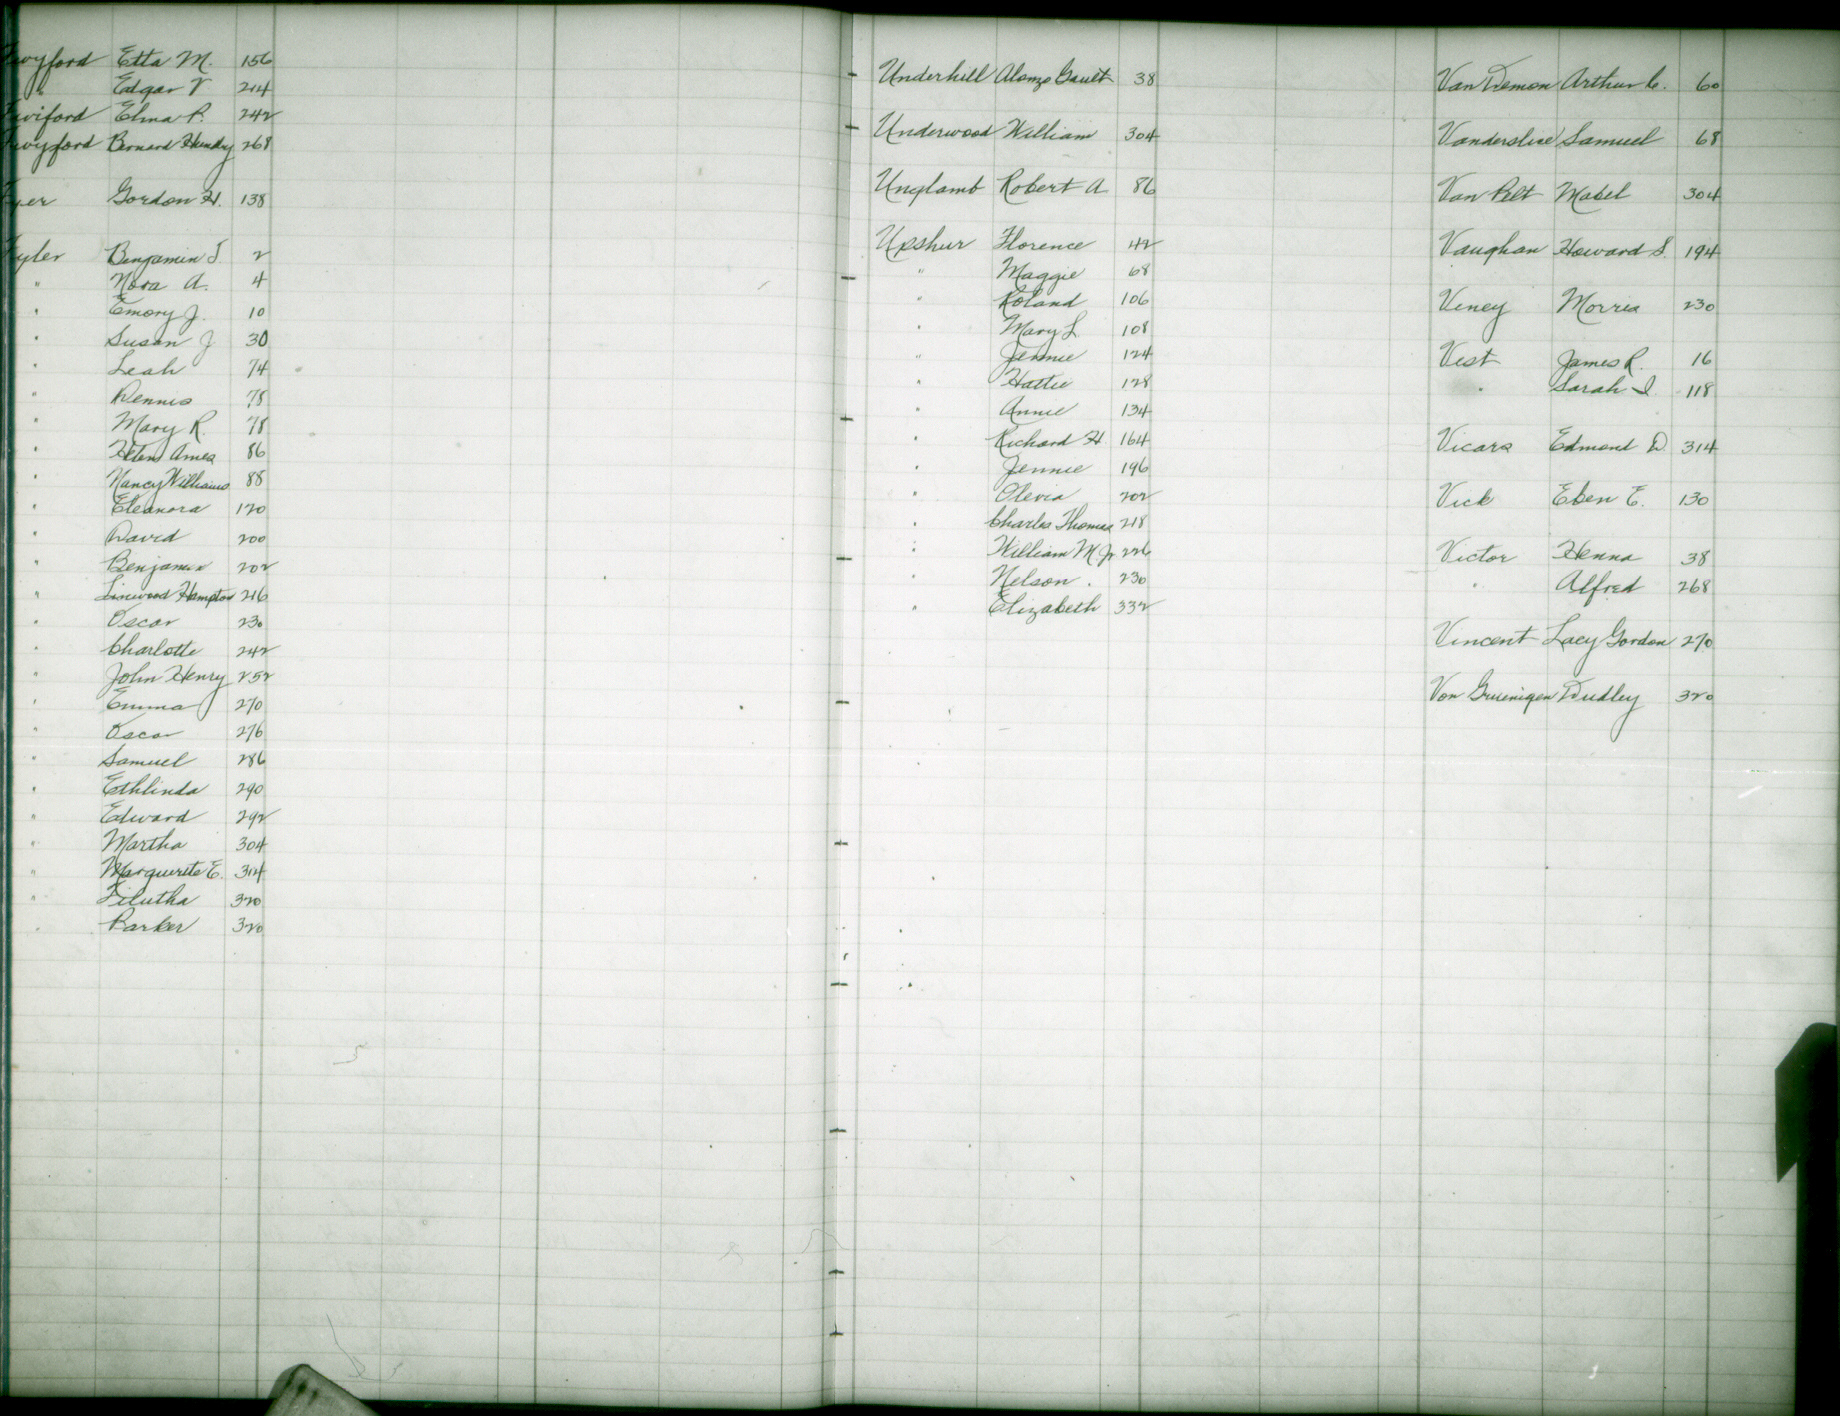 Twyford Etta M. 156
" Edgar V 214
Twiford Elma P. 242
Twyford Bernard Hundley 268
Tyer Gordon H. 138
Tyler Benjamin T 2
" Nora A. 4
" Emory J. 10
" Susan J 30
" Leah 74
" Dennis 78
" Mary R. 78
" Helen Ames 86
" Nancy Williams 88
" Eleanora 120
" David 200
" Benjamin 202
" Linwood Hampton 216
" Oscar 230
" Charlotte 242
" John Henry 252
" Emma 270
" Oscar 276
" Samuel 286
" Ethlinda 290
" Edward 292
" Martha 304
" Marguerite E. 314
" 320
" Parker 320
Underhill Alonzo Gault 38
Underwood William 304
Unglamb Robert A 86
Upshur Florence 42
" Maggie 68
" Roland 106
" Mary L 108
" Jennie 124
" Hattie 128
" Annie 134
" Richard H 164
" Jennie 196
" Olevia 202
" Charles Thomas 218
" William M Jr 226
" Nelson . 230
" Elizabeth 332
Van Demon Arthur C. 60
Vanderslice Samuel 68
Van Pelt Mabel 304
Vaughan Howard S. 194
Veney Morris 230
Vest James R. 16
" Sarah I 118
Vicars Edmond D 314
Vick Eben E. 130
Victor Henna 38
" Alfred 268
Vincent Lacy Gordon 270
Von Gruenigen Dudley 320